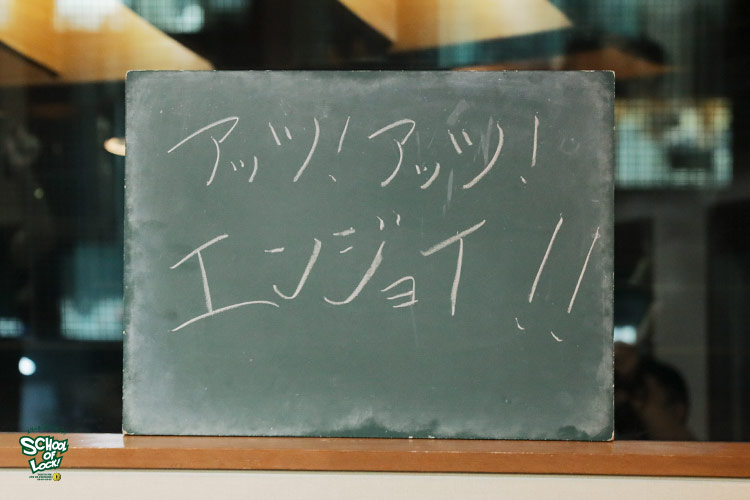 アッツ!アッツ!
エンジョイ!!
SCHOOL
OF
LOCK!